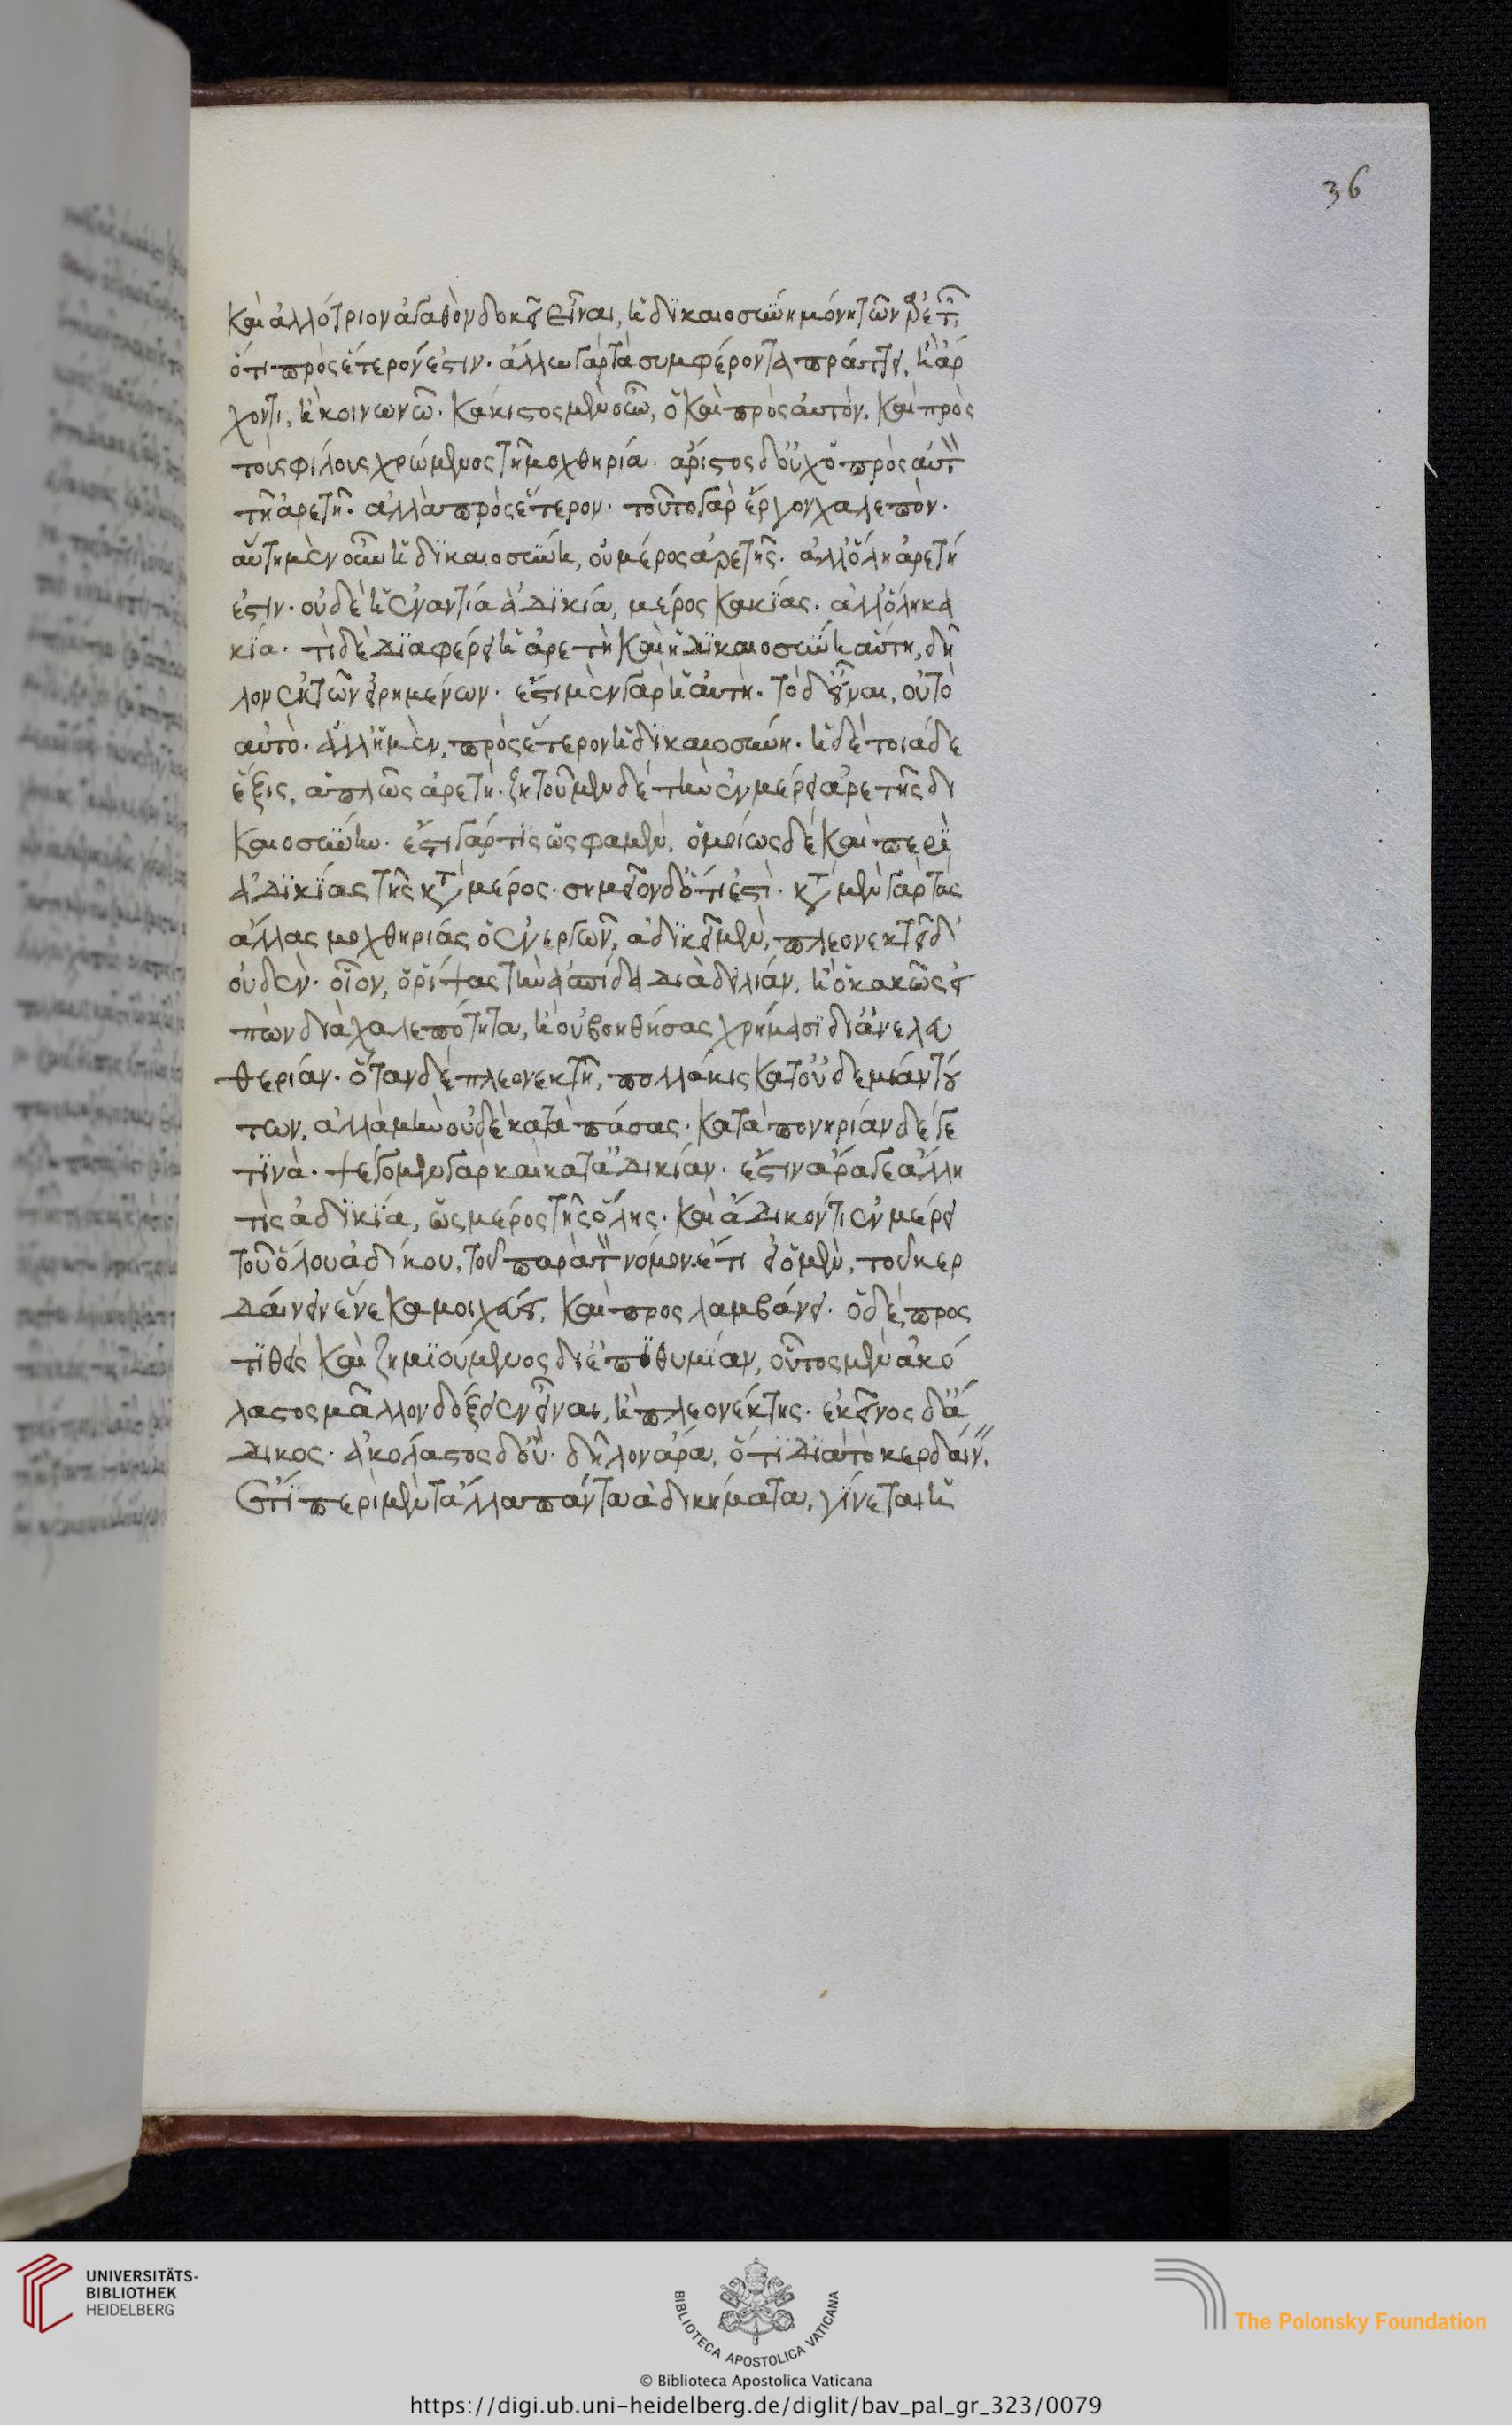 36
καὶ ἀλλότριον ἀγαθὸν δοκεῖ εἶναι, ἡ δϊκαιοσύνη μόνη τῶν ἀρετῶν,
ὅτι πρὸς ἕτερόν ἐστιν. ἄλλω γὰρ τὰ συμφέροντα πράττει, ἢ ἄρ
χοντι, ἢ κοινωνῶ. κάκιστος μὲν οὖν, ὁ καὶ πρὸς αὑτὸν, καὶ πρὸς
τοὺς φίλους χρώμενος τῆ μοχθηρία. ἄριστος δ' οὐχ ὁ πρὸς αὑτὸν
τῆ ἀρετῆ. ἀλλὰ πρὸς ἕτερον. τοῦτο γὰρ ἔργον χαλεπὸν.
αὕτη μὲν οὖν ἡ δϊκαιοσύνη, οὐ μέρος ἀρετῆς. ἀλλ' ὅλη ἀρετή
ἐστιν. οὐδὲ ἡ ἐναντία ἀδϊκία, μέρος κακίας. ἀλλ' ὅλη κα
κϊα. τὶ δὲ δϊαφέρει ἡ ἀρετὴ καὶ ἡ δϊκαιοσύνη αὕτη, δῆ
λον ἐκ τῶν εἰρημένων. ἔστι μὲν γὰρ ἡ αὐτὴ. τὸ δ' εἶναι, οὐ τὸ
αὐτὸ. ἀλλ' ἧ μὲν, πρὸς ἕτερον ἡ δϊκαιοσύνη. ἡ δὲ τοιάδε
ἕξις, ἁπλῶς ἀρετὴ. ζητοῦμεν δέ τὴν ἐν μέρει ἀρετῆς δι
καιοσύνην. ἔστι γάρ τϊς ὥς φαμεν, ὁμοίως δὲ καὶ περὶ
ἀδϊκίας τῆς κατὰ μέρος. σημεῖον δ' ὅτι ἐστὶ. κατὰ μὲν γὰρ τὰς
ἄλλας μοχθηρίας ὁ ἐνεργῶν, ἀδϊκεῖ μὲν, πλεονεκτεῖ δ'
οὐδὲν. οἷον, ὁ ῥίψας τὴν ἀσπίδα διὰ δειλίαν, ἢ ὁ κακῶς εἰ
πὼν διὰ χαλεπότητα, ἢ οὐ βοηθήσας χρήμασϊ δι' ἀνελευ
θερίαν. ὅταν δὲ πλεονεκτῆ, πολλάκις κατ' οὐδεμίαν τού
των, ἀλλὰ μὴν οὐδὲ κατὰ πάσας. κατὰ πονηρίαν δέ γε
τϊνὰ. ψέγομεν γὰρ καὶ κατ' ἀδικίαν. ἔστιν ἄρα γε ἄλλη
τὶς ἀδϊκϊα, ὡς μέρος τῆς ὅλης. καὶ ἄδικόν τι ἐν μέρει
τοῦ ὅλου ἀδίκου, τοῦ παρὰ τὸν νόμον. ἔτι εἰ ὁ μὲν, τοῦ κερ
δαίνειν ἕνεκα μοιχεύει, καὶ προς λαμβάνει. ὁ δὲ, προς
τϊθεὶς καὶ ζημϊούμενος δι' ἐπϊθυμίαν, οὗτος μὲν ἀκό
λαστος μᾶλλον δόξειεν εἶναι, ἢ πλεονέκτης. ἐκεῖνος δ' ἄ
δικος. ἀκόλαστος δ' οὔ. δῆλον ἄρα, ὅτϊ δϊὰ τὸ κερδαίνειν.
ἔτϊ περὶ μὲν τἄλλα πάντα ἀδικήματα, γίνεται ἡ
UNIVERSITÄTS-
BIBLIOTHEK
HEIDELBERG
BIBLIOTECA APOSTOLICA VATICANA
The Polonsky Foundation
© Biblioteca Apostolica Vaticana
https://digi.ub.uni-heidelberg.de/diglit/bav_pal_gr_323/0079